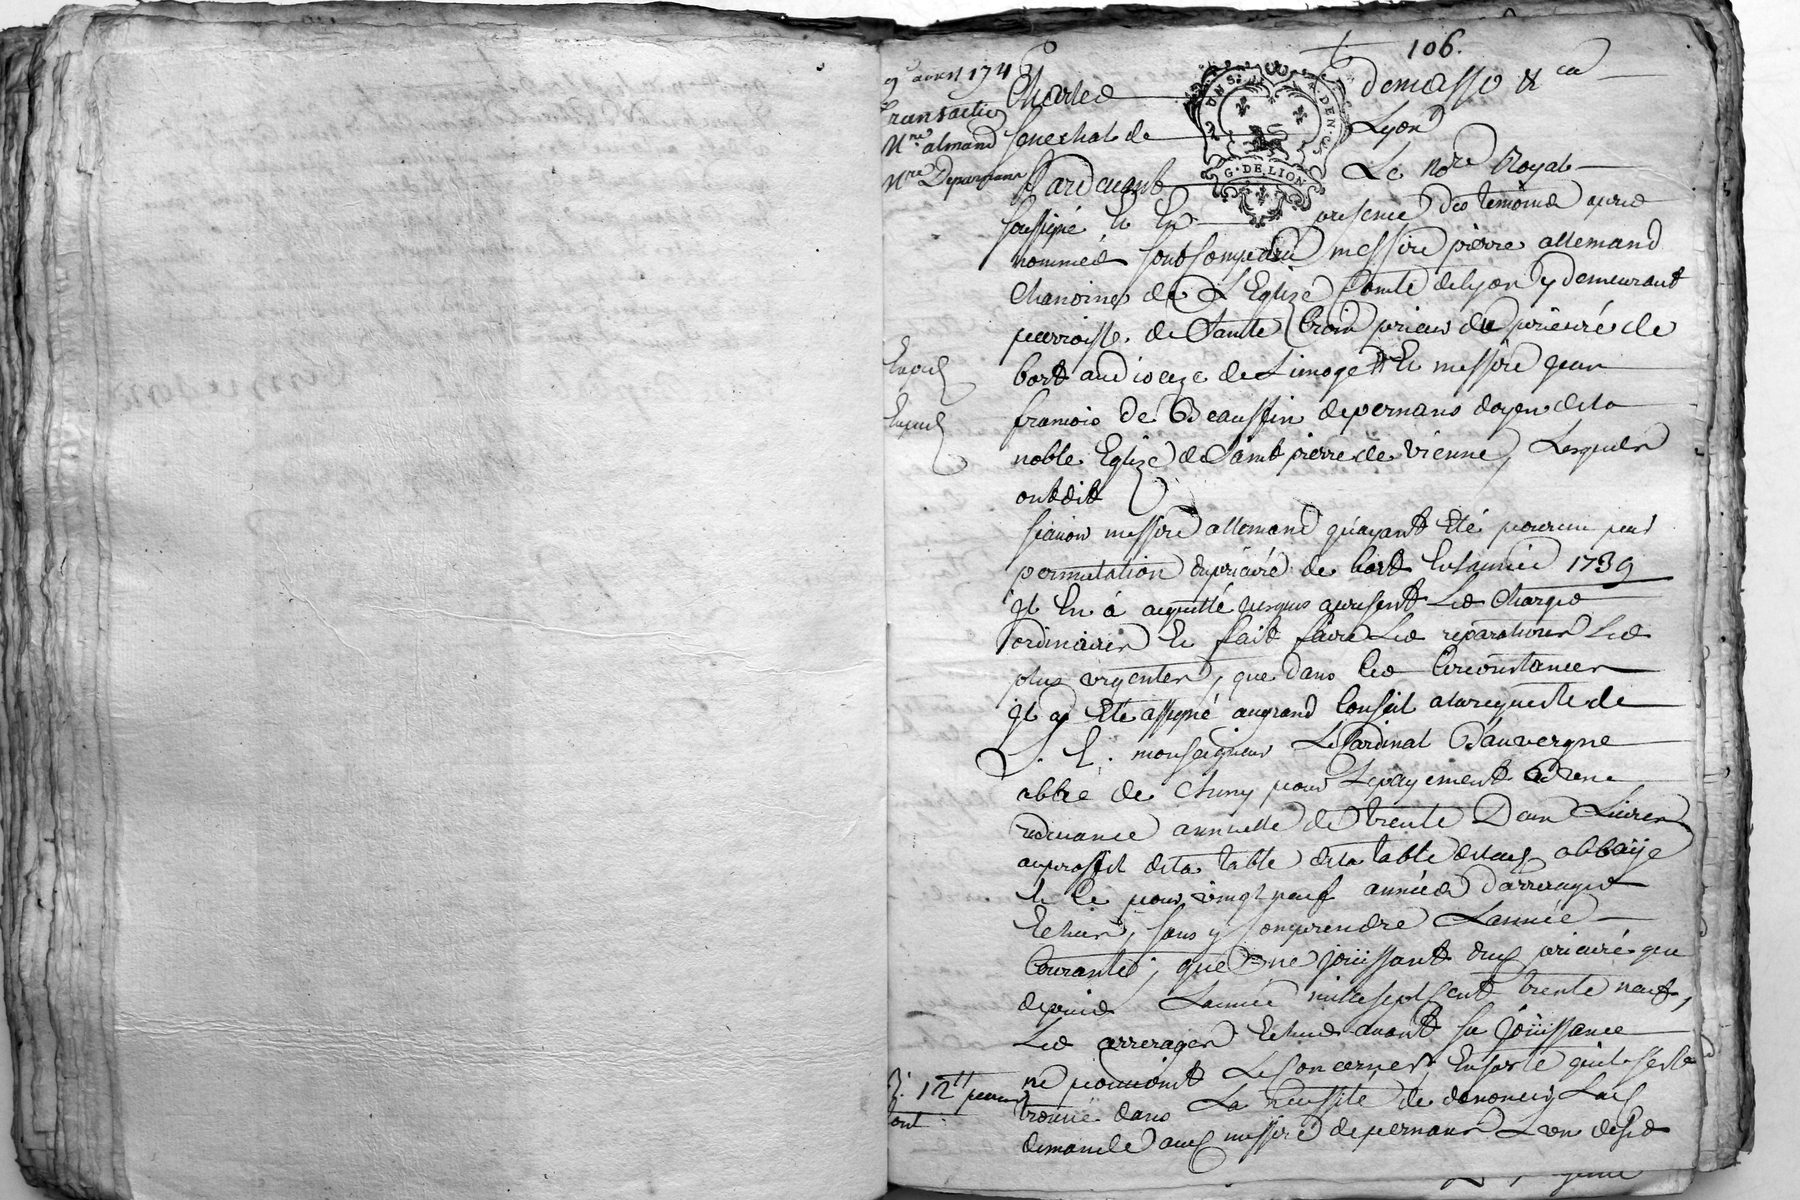 106.
9 avril 1746
Transaction
Mre almand
Mre Depernans
Charles demasso &ca
senechal de Lyon
Pardevant Le nore Royal
soussigné et en presence des temoins apres
nommés sont comparu messire pierre allemand
Chanoine de L'Eglize Comte de lyon y demeurant
parroisse de Sainte Croix prieur du prieuré de
bort au dioceze de Limoge Et messire jean
francois De Beaussin depernans doyen de la
noble Eglize de Saint pierre de vienne, Lesquels
ont dit
scavoir messire allemand qu'ayant été pourvu par
permutation du prieuré de bort en l'année 1739
il en à acquitté jusques apresent Les Charges
ordinaires Et fait faire Les reparations Les
plus urgentes, que dans Ces Circonstances
il a été assigné au grand Conseil a la requeste de
S. E. monseigneur Le Cardinal D'auvergne
abbé de Cluny pour Le payement d'une
redevance annuelle de trente Deux Livres
au proffit de la table de la table de lad abbaije
Et Ce pour vingt neuf années d'arrerages
Echus, sans y Comprendre L'année
Courante, que ne joüissant dud prieuré que
depuis L'année mille sept Cent trente neuf,
Les arrerages Echus avant sa joüissance
ne pouvoint Le Concerner, Ensorte qu'il s'est
trouvé dans La necessité de denoncer Lad
demande aud messire depernans L'un desd
R. 12tt
G. DE LION